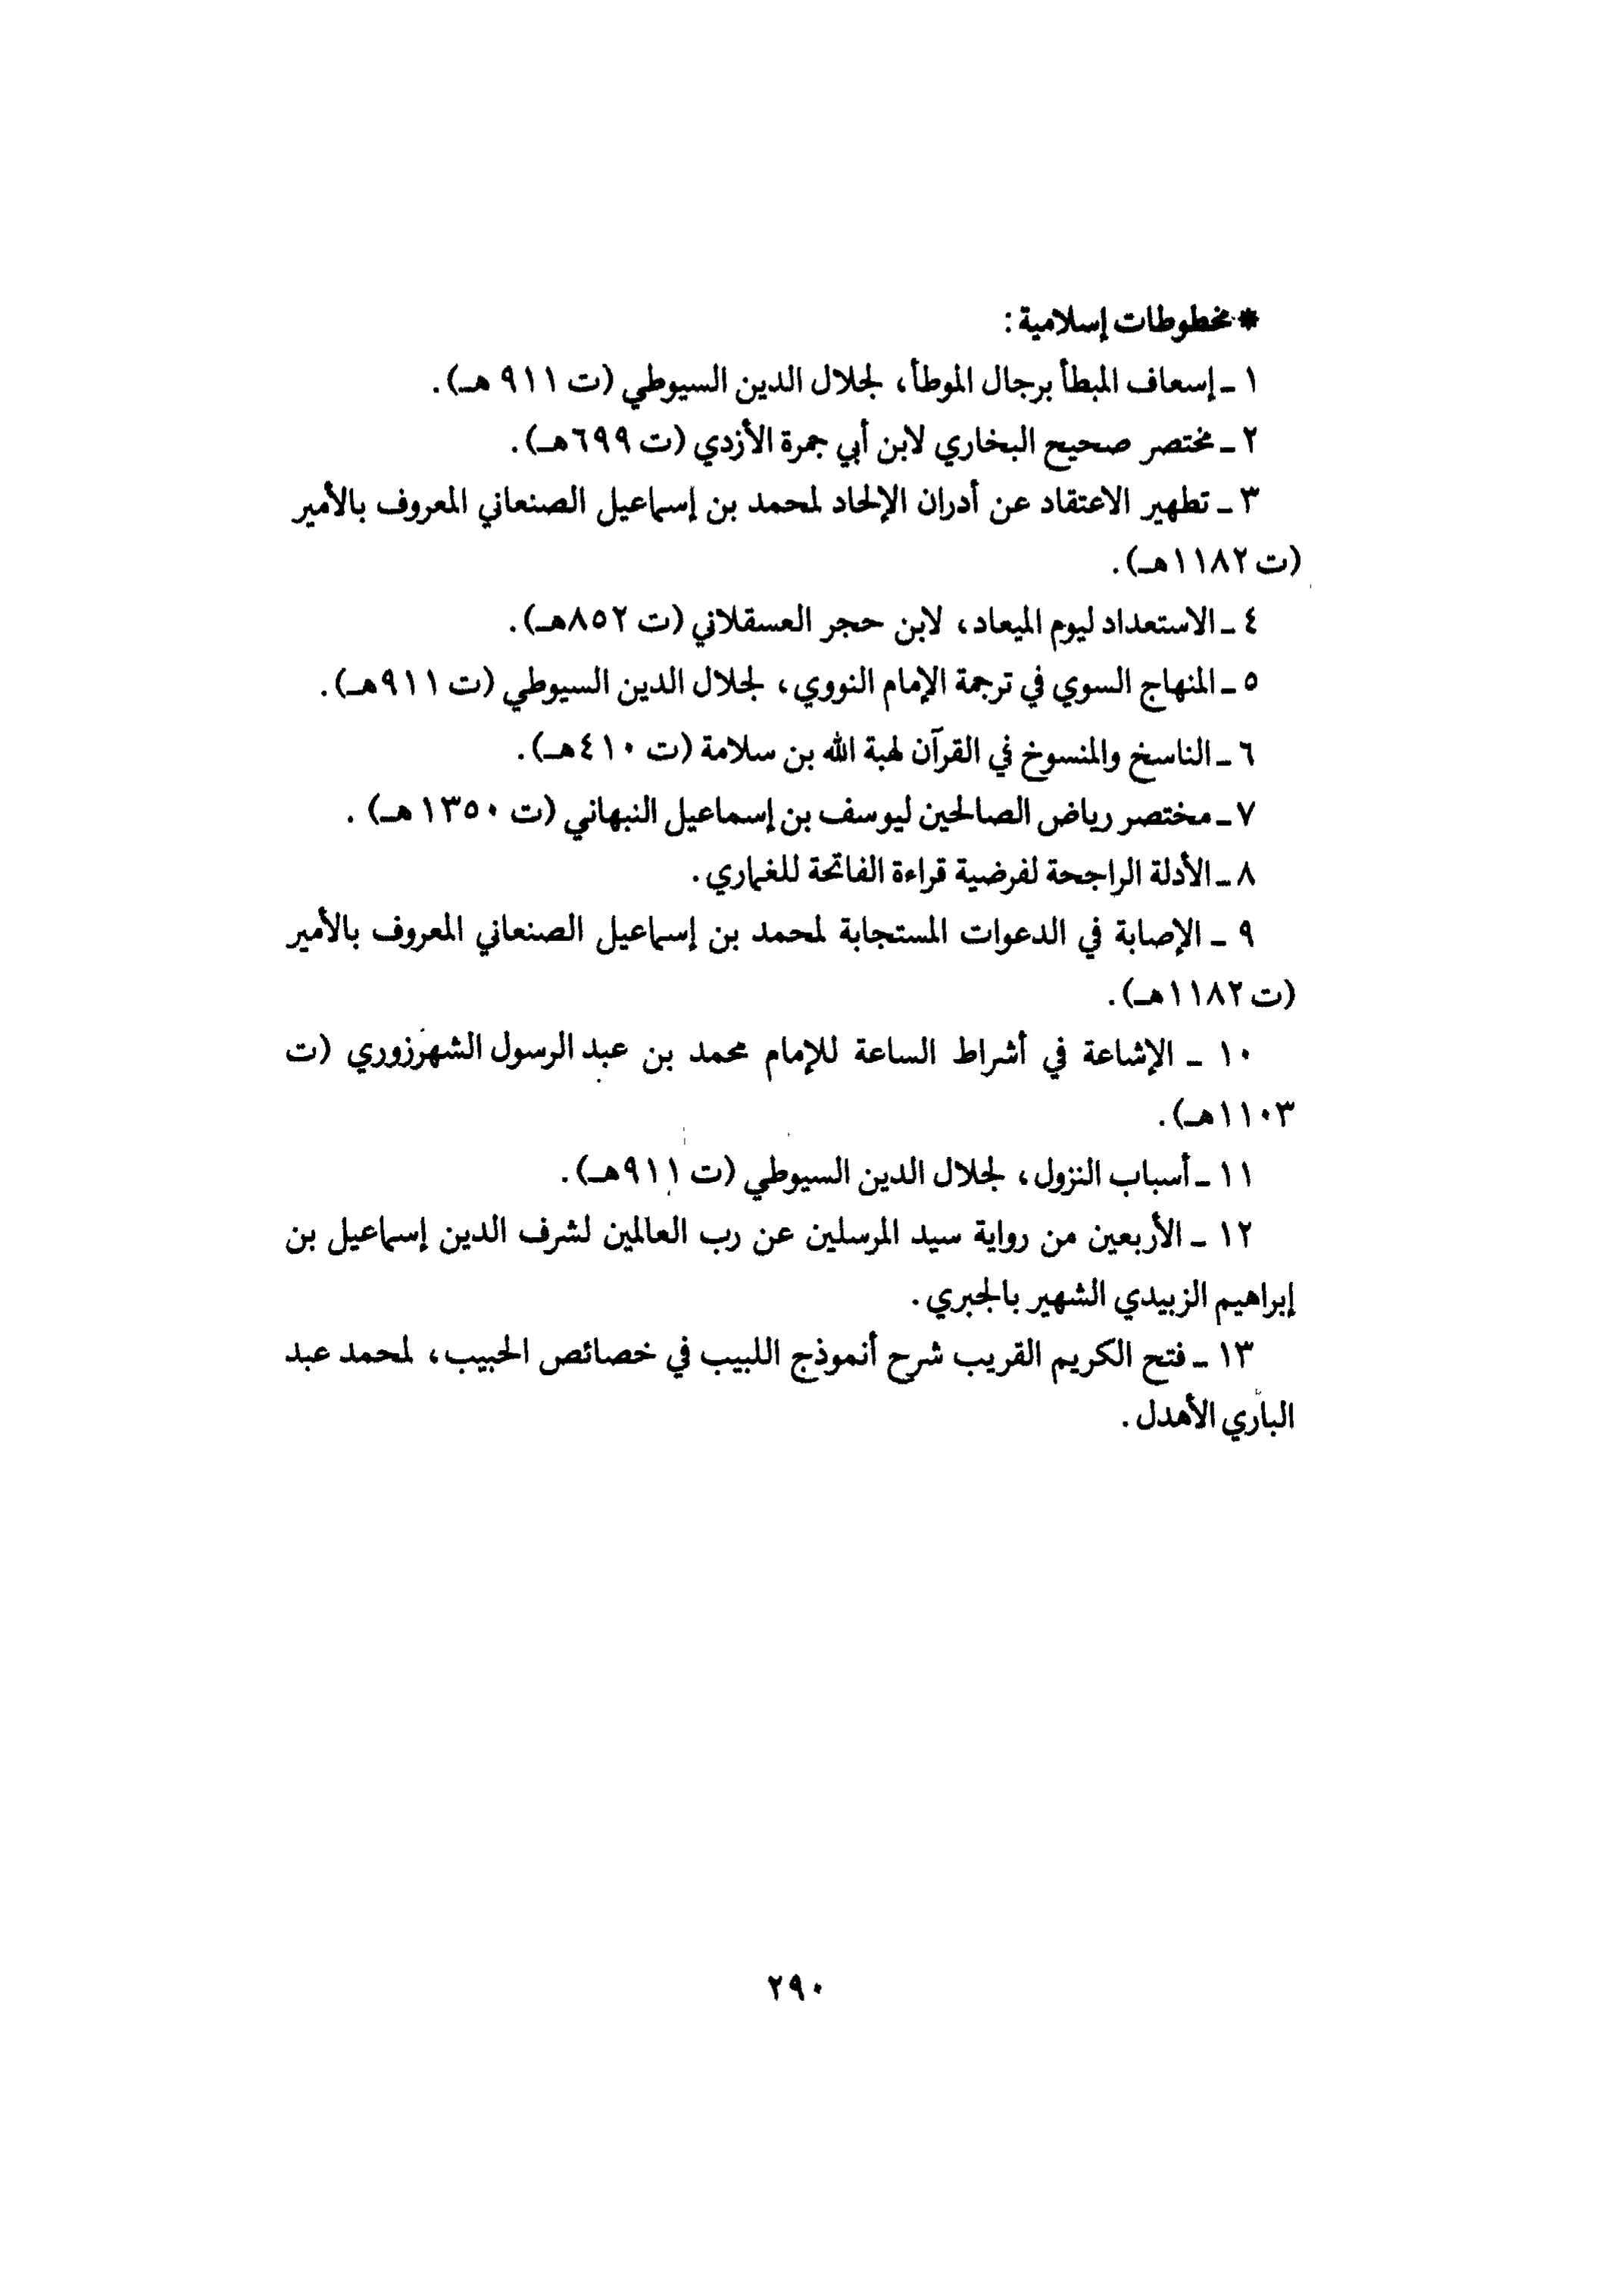 * مخطوطات إسلامية :
١ ـ إسعاف المبطأ برجال الموطأ، لجلال الدين السيوطي (ت ٩١١ هـ).
٢ ـ مختصر صحيح البخاري لابن أبي جمرة الأزدي (ت ٦٩٩هـ).
٣ ـ تطهير الاعتقاد عن أدران الإلحاد لمحمد بن إسماعيل الصنعاني المعروف بالأمير
(ت ١١٨٢هـ).
٤ ـ الاستعداد ليوم الميعاد، لابن حجر العسقلاني (ت ٨٥٢هـ).
٥ ـ المنهاج السوي في ترجمة الإمام النووي، لجلال الدين السيوطي (ت ٩١١هـ).
٦ ـ الناسخ والمنسوخ في القرآن لهبة الله بن سلامة (ت ٤١٠هـ).
٧ ـ مختصر رياض الصالحين ليوسف بن إسماعيل النبهاني (ت ١٣٥٠ هـ) .
٨ ـ الأدلة الراجحة لفرضية قراءة الفاتحة للغماري.
٩ ـ الإصابة في الدعوات المستجابة لمحمد بن إسماعيل الصنعاني المعروف بالأمير
(ت ١١٨٢هـ).
١٠ ـ الإشاعة في أشراط الساعة للإمام محمد بن عبد الرسول الشهرزوري (ت
١١٠٣هـ).
١١ ـ أسباب النزول، لجلال الدين السيوطي (ت ٩١١هـ).
١٢ ـ الأربعين من رواية سيد المرسلين عن رب العالمين لشرف الدين إسماعيل بن
إبراهيم الزبيدي الشهير بالجبري.
١٣ ـ فتح الكريم القريب شرح أنموذج اللبيب في خصائص الحبيب، لمحمد عبد
الباري الأهدل.
٢٩٠